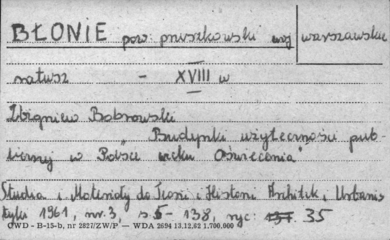 BŁONIE pow. pruszkowski woj warszawskie
ratusz - XVIII w
Zbigniew Bobrowski
"Budynki użyteczności pub-
licznej w Polsce wieku Oświecenia"
Studia i Materiały do Teorii i Historii Architek. i Urbanis
tyki 1961, nr. 3, s. 5 - 138, ryc. 35
CWD - B-15-b, nr 2827/ZW/P — WDA 2694 13.12.62 1.700.000